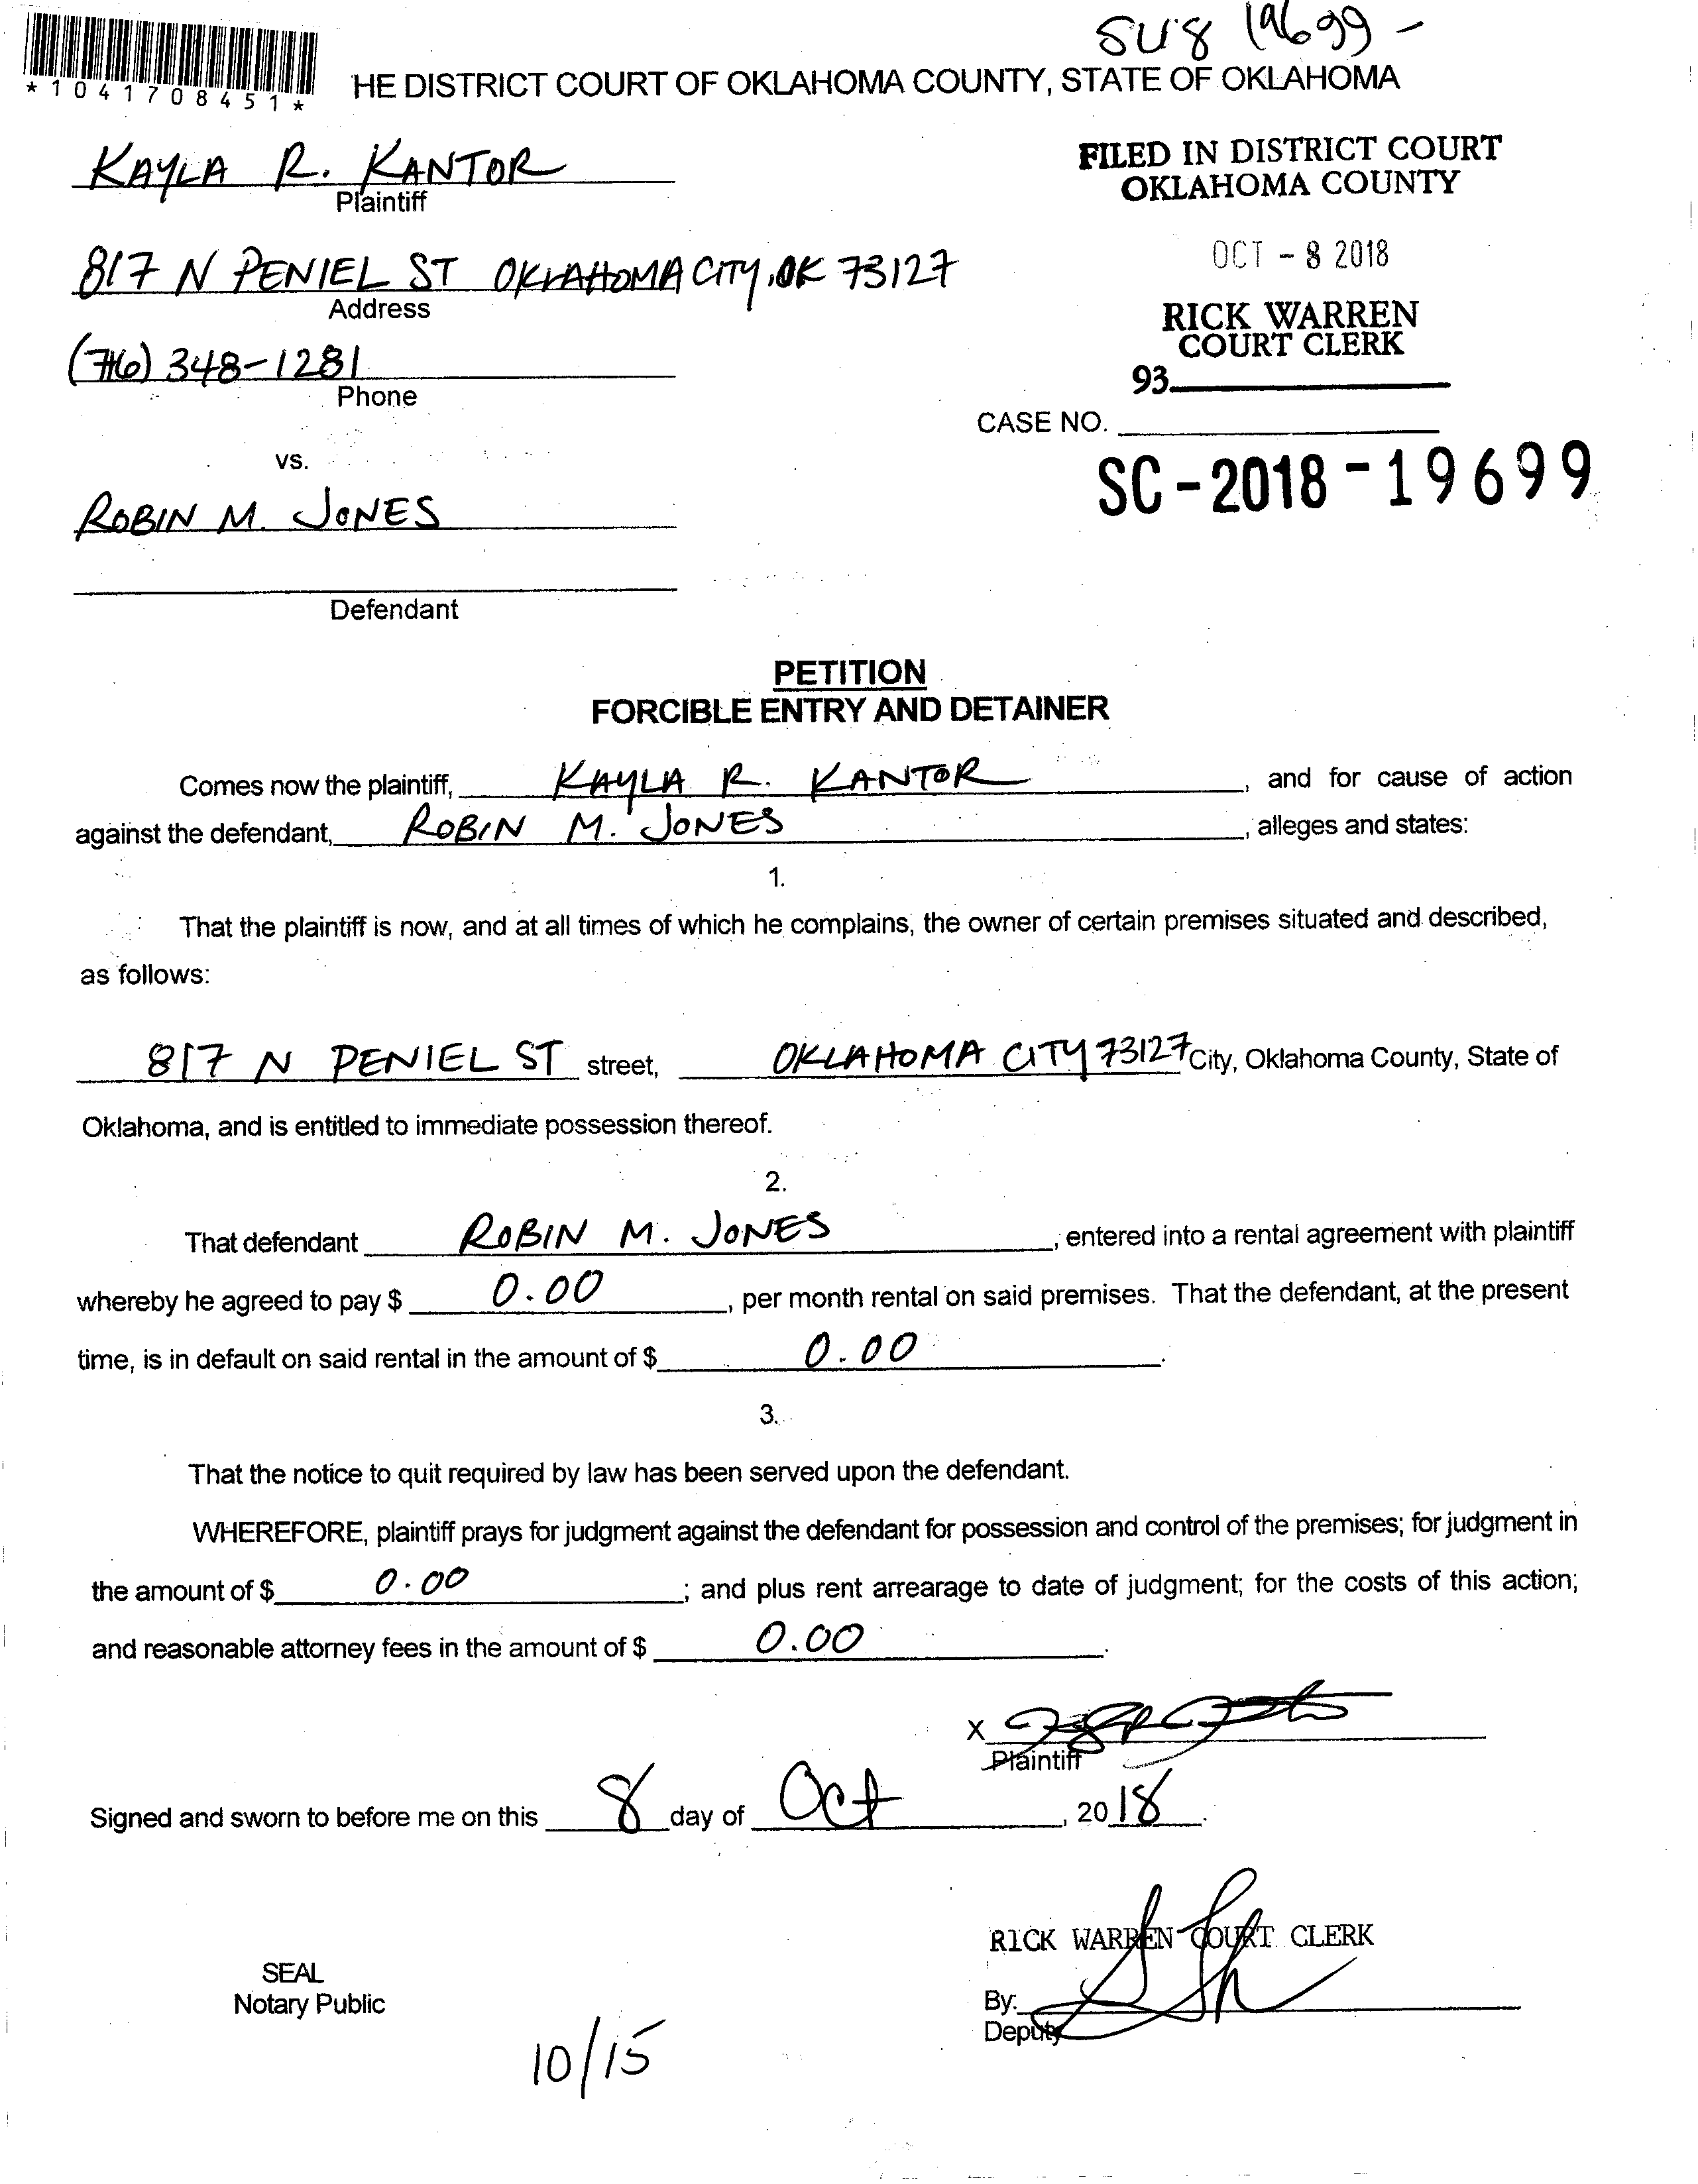 SU'8 19699 -
*1041708451*
HE DISTRICT COURT OF OKLAHOMA COUNTY, STATE OF OKLAHOMA
KAYLA R. KANTOR
Plaintiff
FILED IN DISTRICT COURT
OKLAHOMA COUNTY
817 N PENIEL ST OKLAHOMA CITY, OK 73127
Address
OCT - 8 2018
RICK WARREN
COURT CLERK
(716) 348-1281
Phone
93
CASE NO.
vs.
SC-2018-19699
ROBIN M. JONES
Defendant
PETITION
FORCIBLE ENTRY AND DETAINER
Comes now the plaintiff, KAYLA R. KANTOR, and for cause of action
against the defendant, ROBIN M. JONES, alleges and states:
1.
That the plaintiff is now, and at all times of which he complains, the owner of certain premises situated and described,
as follows:
817 N PENIEL ST street, OKLAHOMA CITY 73127 City, Oklahoma County, State of
Oklahoma, and is entitled to immediate possession thereof.
2.
That defendant ROBIN M. JONES, entered into a rental agreement with plaintiff
whereby he agreed to pay $ 0.00, per month rental on said premises. That the defendant, at the present
time, is in default on said rental in the amount of $ 0.00.
3.
That the notice to quit required by law has been served upon the defendant.
WHEREFORE, plaintiff prays for judgment against the defendant for possession and control of the premises; for judgment in
the amount of $ 0.00; and plus rent arrearage to date of judgment; for the costs of this action;
and reasonable attorney fees in the amount of $ 0.00.
X
Plaintiff
Signed and sworn to before me on this 8 day of Oct, 2018.
RICK WARREN COURT CLERK
SEAL
Notary Public
By:
Deputy
10/15